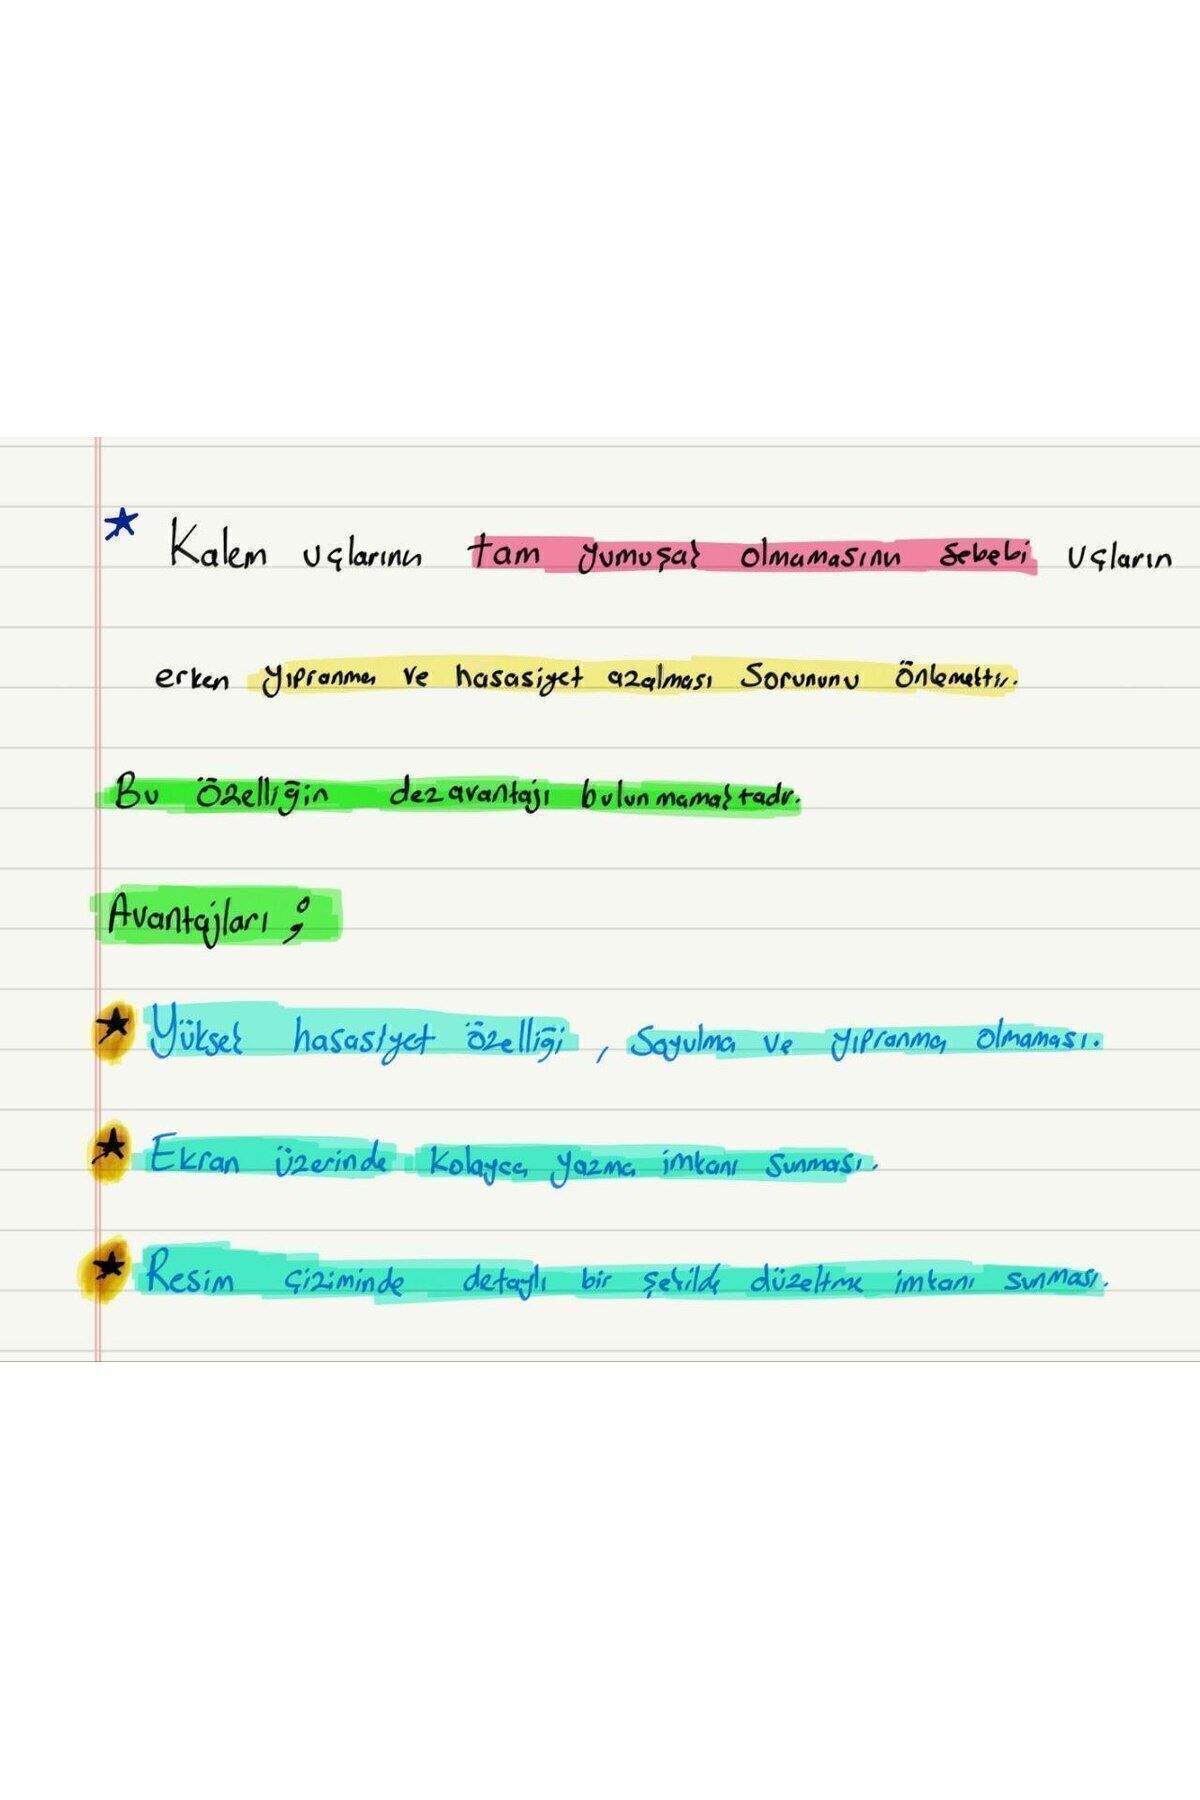 Kalem uçlarının tam yumuşak olmamasının sebebi uçların
erken yıpranma ve hasasiyet azalması sorununu önlemektir.
Bu özelliğin dezavantajı bulunmamaktadır.
Avantajları ;
Yüksek hasasiyet özelliği , Soyulma ve yıpranma olmaması.
Ekran üzerinde kolayca yazma imkanı sunması.
Resim çiziminde detaylı bir şekilde düzeltme imkanı sunması.